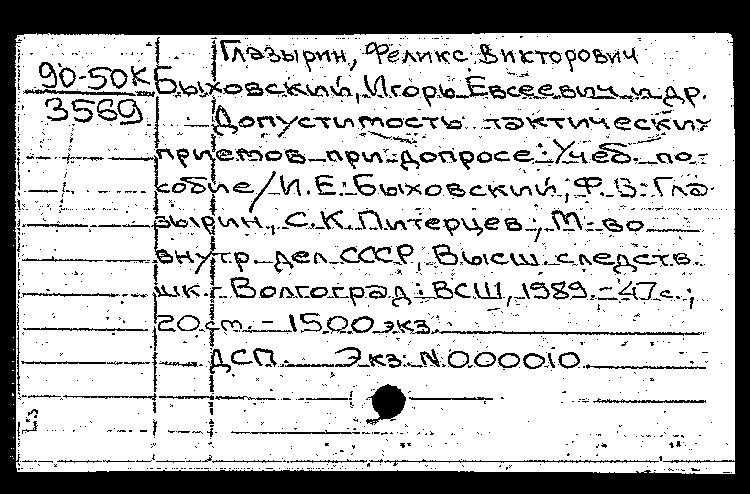 Глазырин, Феликс Викторович
90-50К
3569
Быховский, Игорь Евсеевич и др.
Допустимость тактических
приемов при допросе: Учеб. по-
собие / И. Е. Быховский, Ф. В. Гла-
зырин, С. К. Питерцев; М-во
внутр. дел СССР, Высш. следств.
шк. - Волгоград: ВСШ, 1989. - 47 с.;
20 см. - 1500 экз.
ДСП. Экз. N 000010